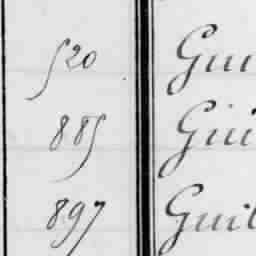 520 Gui
885 Gui
897 Guil